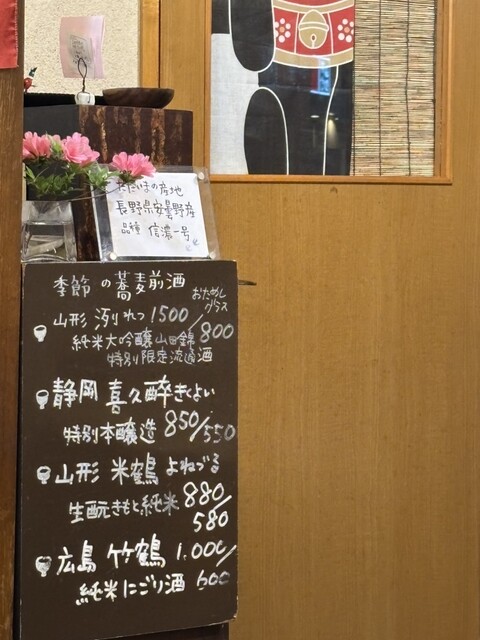 ただいまの産地
長野県安曇野産
品種 信濃一号
季節の蕎麦前酒
おためし
グラス
山形 洌 れつ 1500/800
純米大吟醸 山田錦
特別限定流通酒
静岡 喜久醉 きくよい
特別本醸造 850/550
山形 米鶴 よねづる
生酛 きもと純米 880/580
広島 竹鶴 1.000/
純米にごり酒 600